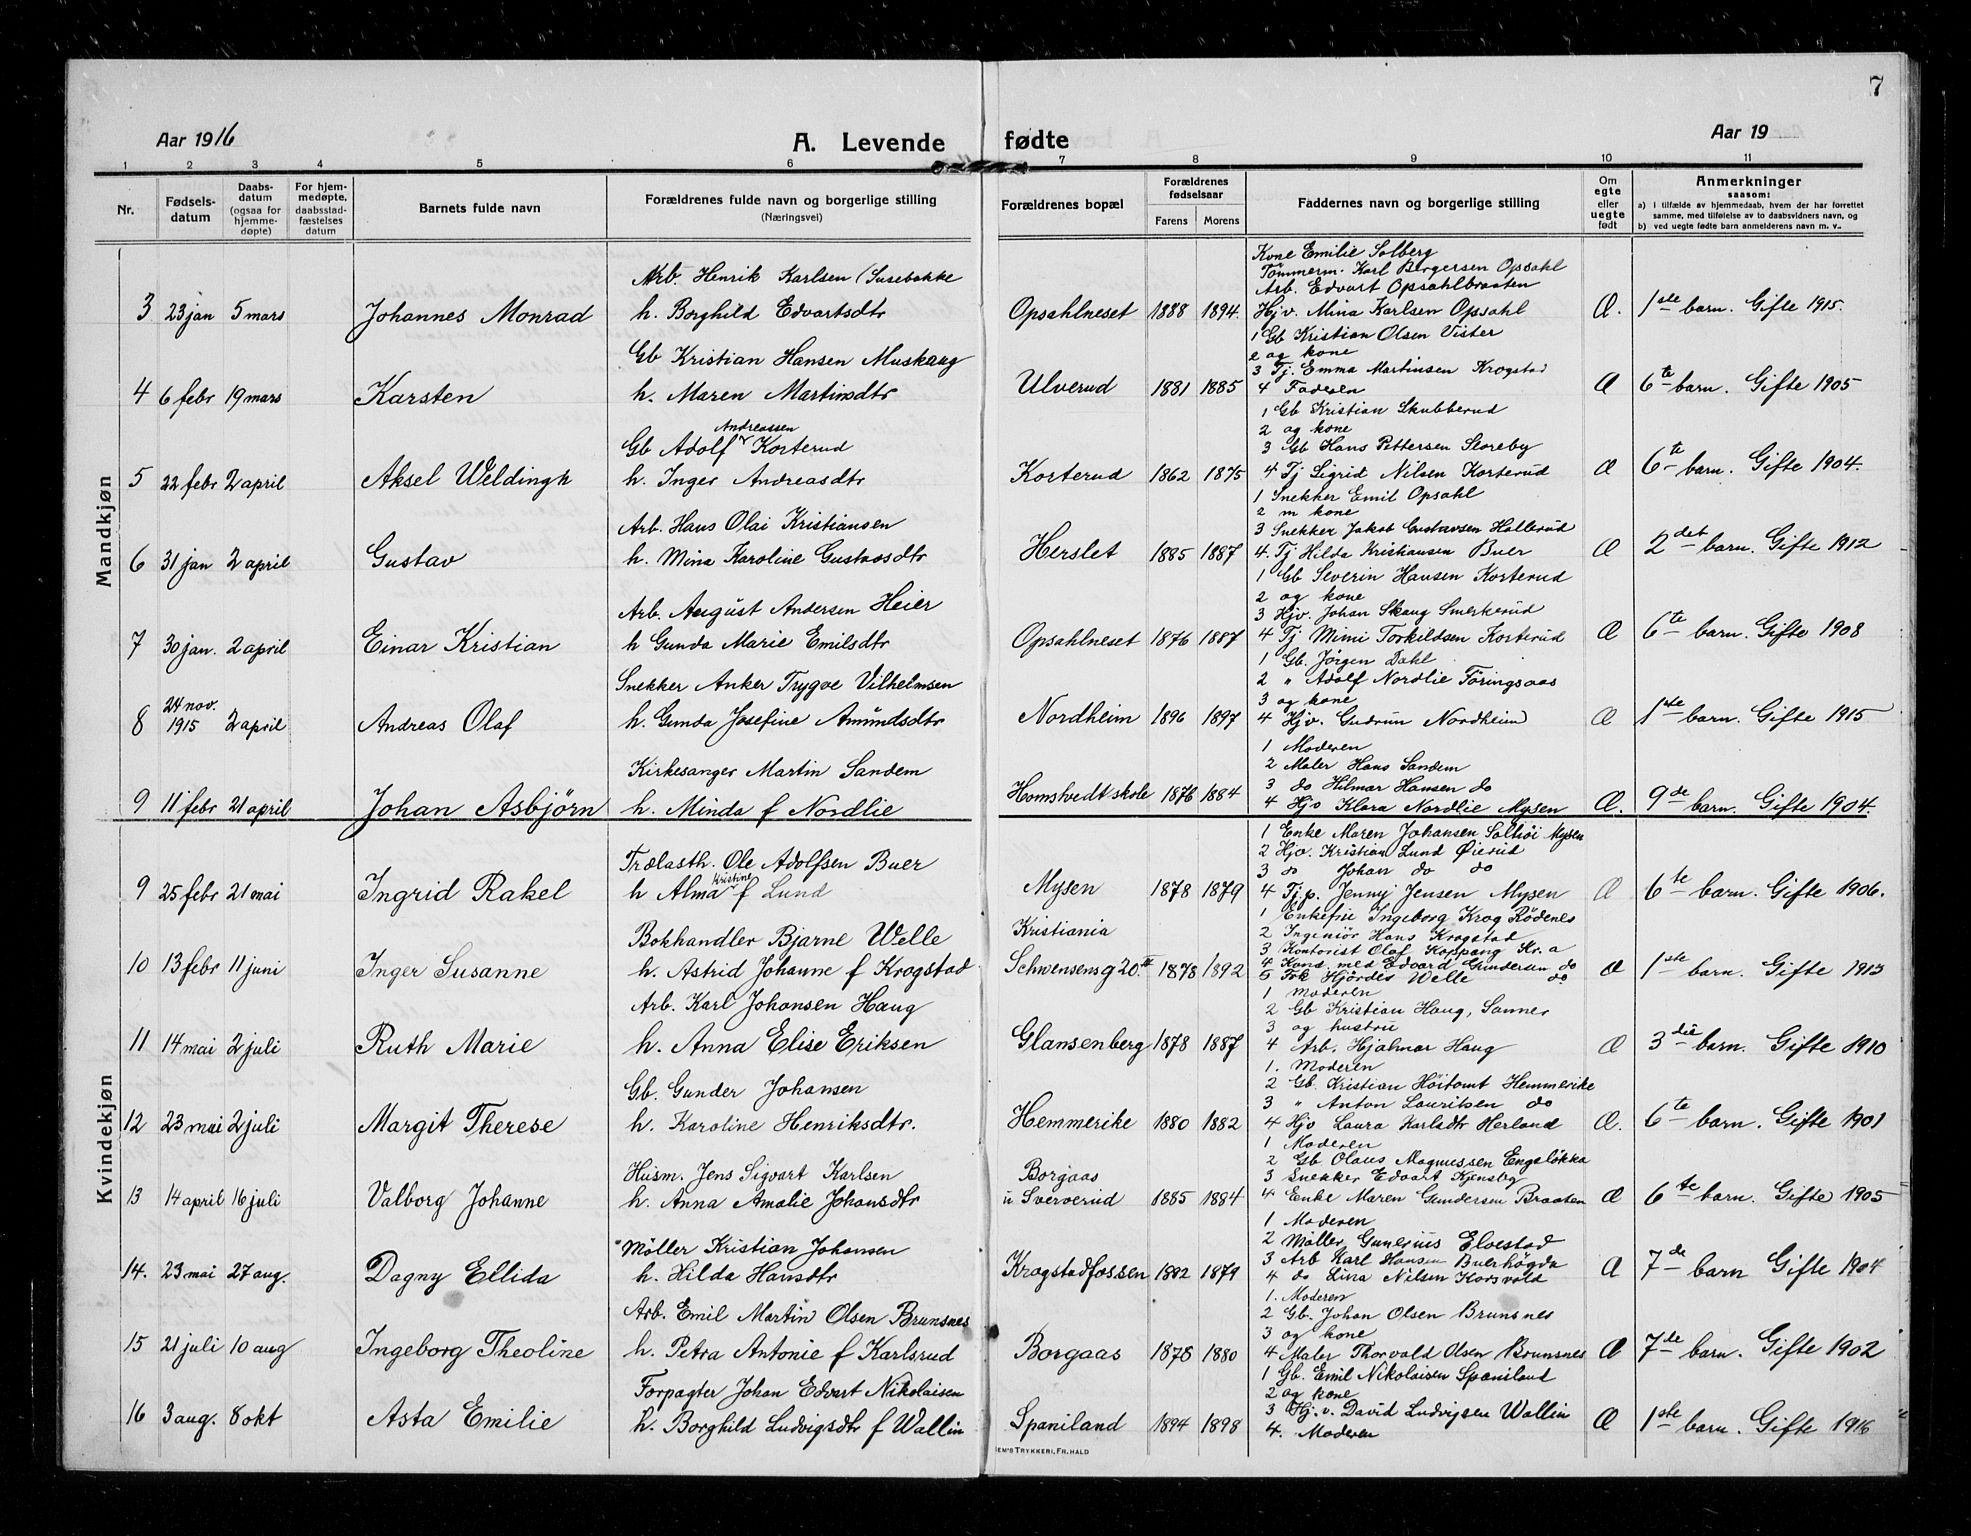 7
Aar 1916
A. Levende fødte
Aar 19
1 2 3 4 5 6 7 8 9 10 11
Nr.
Fødsels-
datum
Daabs-
datum
(ogsaa for
hjemme-
døpte)
For hjem-
medøpte,
daabsstad-
fæstelses
datum
Barnets fulde navn
Forældrenes fulde navn og borgerlige stilling
(Næringsvei)
Forældrenes bopæl
Forældrenes
fødselsaar
Farens Morens
Faddernes navn og borgerlige stilling
Om
egte
eller
uegte
født
Anmerkninger
saasom:
a) i tilfælde av hjemmedaab, hvem der har forrettet
samme, med tilføielse av to daabsvidners navn, og
b) ved uegte fødte barn anmelderens navn m. v..
Mandkjøn
Arb. Henrik Karlsen (Susebakke
3 23 jan 5 mars Johannes Monrad h. Borghild Edvartsdtr
Opsahlneset 1888 1894.
Kone Emilie Solberg
Tømmerm. Karl Borgersen Opsahl
Arb. Edvart Opsahlbraaten
Hjv. Mina Karlsen Opsahl
Æ. 1ste barn. Gifte 1915.
Gb Kristian Hansen Muskaug
4 6 febr 19 mars Karsten h. Maren Martinsdtr
Ulverud 1881 1885
1 Gb Kristian Olsen Vister
2 og kone
3 Tj. Emma Martinsen Krogstad
4 Faderen
Æ 6te barn. Gifte 1905
Andreassen
Gb Adolf Korterud
5 22 febr 2 april Aksel Weldingh h. Inger Andreasdtr
Korterud 1862 1875
1 Gb Kristian Skubberud
2 og kone
3 Gb Hans Pettersen Storeby
4 Tj Sigrid Nilsen Korterud
Æ 6te barn. Gifte 1904.
Arb. Hans Olai Kristiansen
6 31 jan 2 april Gustav h. Mina Karoline Gustavsdtr
Herslet 1885 1887
1 Snekker Emil Opsahl
2 m kone
3 Snekker Jakob Gustavsen Hallerud
4. Tj Hilda Kristiansen Buer
Æ 2det barn. Gifte 1912
Arb. August Andersen Heier
7 30 jan. 2 april Einar Kristian h Gunda Marie Emilsdtr
Opsahlneset 1876 1887
1 Gb Severin Hansen Korterud
2 og kone
3 Hjv. Johan Skaug Smerkerud
4 Tj Mimi Torkildsen Korterud
Æ 6te barn. Gifte 1908
Snekker Anker Trygve Vilhelmsen
24 nov.
8 1915 2 april Andreas Olaf h. Gunda Josefine Amundsdtr
Nordheim 1896 1897
1 Gb. Jørgen Dahl
2 " Adolf Nordlie Töringsaas
3 og kone
4 Hjv. Gudrun Nordheim
Æ 1ste barn. Gifte 1915
Kirkesanger Martin Sandem
9 11 febr 21 april Johan Asbjørn h. Minda f Nordlie
Homstvedt skole 1876 1884
1 Moderen
2 Maler Hans Sandem
3 do Hilmar Hansen do
4 Hjv Klara Nordlie Mysen
Æ. 9de barn. Gifte 1904.
Kvindekjøn
Trælasth. Ole Adolfsen Buer
Kristine
9 25 febr 21 mai Ingrid Rakel h Alma f Lund
Mysen 1878 1879
1 Enke Maren Johansen Mysen
2 Hjv. Kristian Lund Øierud
3 do Johan do do
4 Tj.p. Jenny Jensen Mysen
Æ 6te barn. Gifte 1906.
Bokhandler Bjarne Welle
10 13 febr 11 juni Inger Susanne h. Astrid Johanne f Krogstad
Kristiania
Schwensensg 20. 1878 1892
1 Enkefru Ingeborg Krog Rödenes
2 Ingeniör Hans Krogstad
3 Kontorist Olaf Koppang Kr.a
4 Kand. med Edvard Gundersen do
5 Frk Hjördis Welle do
Æ 1ste barn. Gifte 1915
Arb. Karl Johansen Haug
11 14 mai 2 juli Ruth Marie h. Anna Elise Eriksen
Glansenberg 1878 1887
1 Moderen
2 Gb Kristian Haug, Sanner
3 og hustru
4 Arb. Hjalmar Haug
Æ 3die barn. Gifte 1910
Gb. Gunder Johansen
12 23 mai 2 juli Margit Therese h. Karoline Henriksdtr.
Hemmerike 1880 1882
1. Moderen
2 Gb. Kristian Höitomt Hemmerike
3 " Anton Lauritsen do
4 Hjv Laura Karlsdtr Herland
Æ. 6te barn. Gifte 1901
Husm. Jens Sigvart Karlsen
13 14 april 16 juli Valborg Johanne h. Anna Amalie Johansdtr
Borgaas
u Sververud 1885 1884
1 Moderen
2 Gb Olaus Magnussen Engsløkka
3 Snekker Edvart Kjensby
4 Enke Maren Gundersen Braaten
Æ 6te barn. Gifte 1905
Möller Kristian Johansen
14. 23 mai 27 aug. Dagny Ellida h. Hilda Hansdtr
Krogstadfossen 1882 1879
1 Moderen
2 Möller Gunerius Elvestad
3 Arb Karl Hansen Buerhögda
4 do Lina Nilsen Korsvold
Æ 7de barn Gifte 1904
Arb. Emil Martin Olsen Brunsnes
15 21 juli 10 aug Ingeborg Theoline h. Petra Antonie f Karlsrud
Borgaas 1878 1880
1. Moderen
2 Gb. Johan Olsen Brunsnes
3 og kone
4 Maler Thorvald Olsen Brunsnes
Æ 7de barn. Gifte 1902
Forpagter Johan Edvart Nikolaisen
16 3 aug. 8 okt Asta Emilie h. Borghild Ludvigsdtr f Wallin
Spaniland 1894 1898
1 Gb. Emil Nikolaisen Spaniland
2 og kone
3 Hj.v. David Ludvigsen Wallin
4. Moderen
Æ 1ste barn. Gifte 1916
EM'S TRYKKERI, FR.HALD